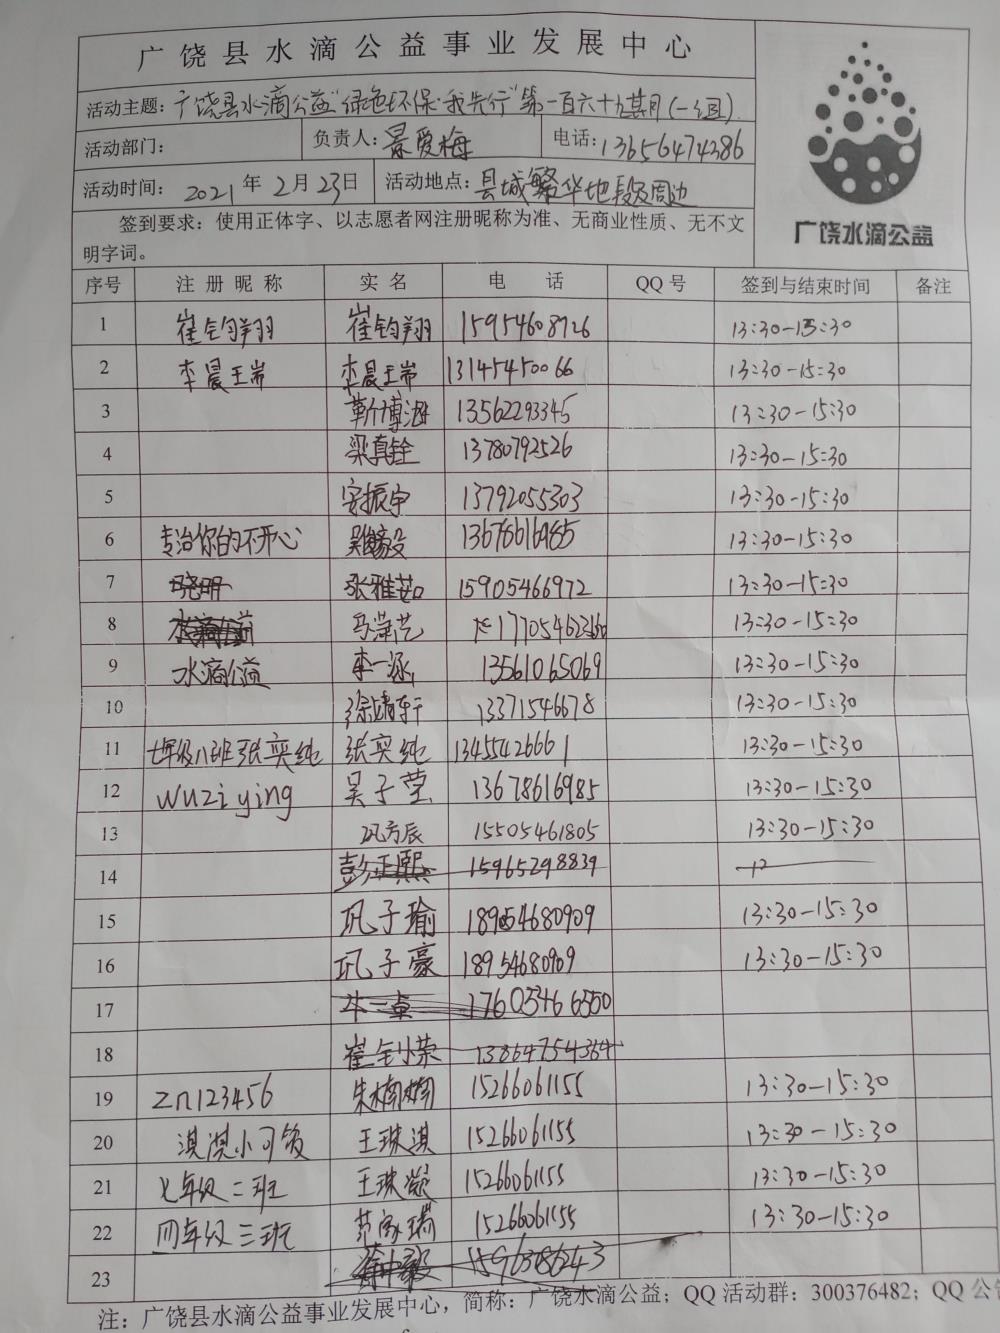 广饶县水滴公益事业发展中心
活动主题：广饶县水滴公益"绿色环保·我先行"第一百六十九期(一组)
活动部门： 负责人：景爱梅 电话：13656474386
活动时间：2021年2月23日 活动地点：县城繁华地段及周边
签到要求：使用正体字、以志愿者网注册昵称为准、无商业性质、无不文
明字词。
广饶水滴公益
序号 注册昵称 实名 电话 QQ号 签到与结束时间 备注
1 崔钧翔 崔钧翔 15954608926 13:30-15:30
2 李晨王岽 李晨王岽 13145450066 13:30-15:30
3 靳博涵 13562293345 13:30-15:30
4 梁真铨 13780792526 13:30-15:30
5 安振宇 13792055303 13:30-15:30
6 专治你的不开心 13678616985 13:30-15:30
7 晓明 张雅茹 15905466972 13:30-15:30
8 马蓂艺 13:30-15:30
9 水滴公益 李一涵 13561065069 13:30-15:30
10 徐靖轩 13371546678 13:30-15:30
11 七年级八班张奕纯 张奕纯 13455426661 13:30-15:30
12 wuziying 吴子莹 13678616985 13:30-15:30
13 巩方辰 15505461805 13:30-15:30
14 彭正熙 15965298839
15 巩子瑜 18954680909 13:30-15:30
16 巩子豪 18954680909 13:30-15:30
17 牛一卓 17605466550
18 13864754364
19 zn123456 朱楠楠 15266061155 13:30-15:30
20 淇淇小可饭 王琳淇 15266061155 13:30-15:30
21 七年级二班 15266061155 13:30-15:30
22 四年级三班 范家瑞 15266061155 13:30-15:30
23
注：广饶县水滴公益事业发展中心，简称：广饶水滴公益；QQ活动群：300376482；QQ公